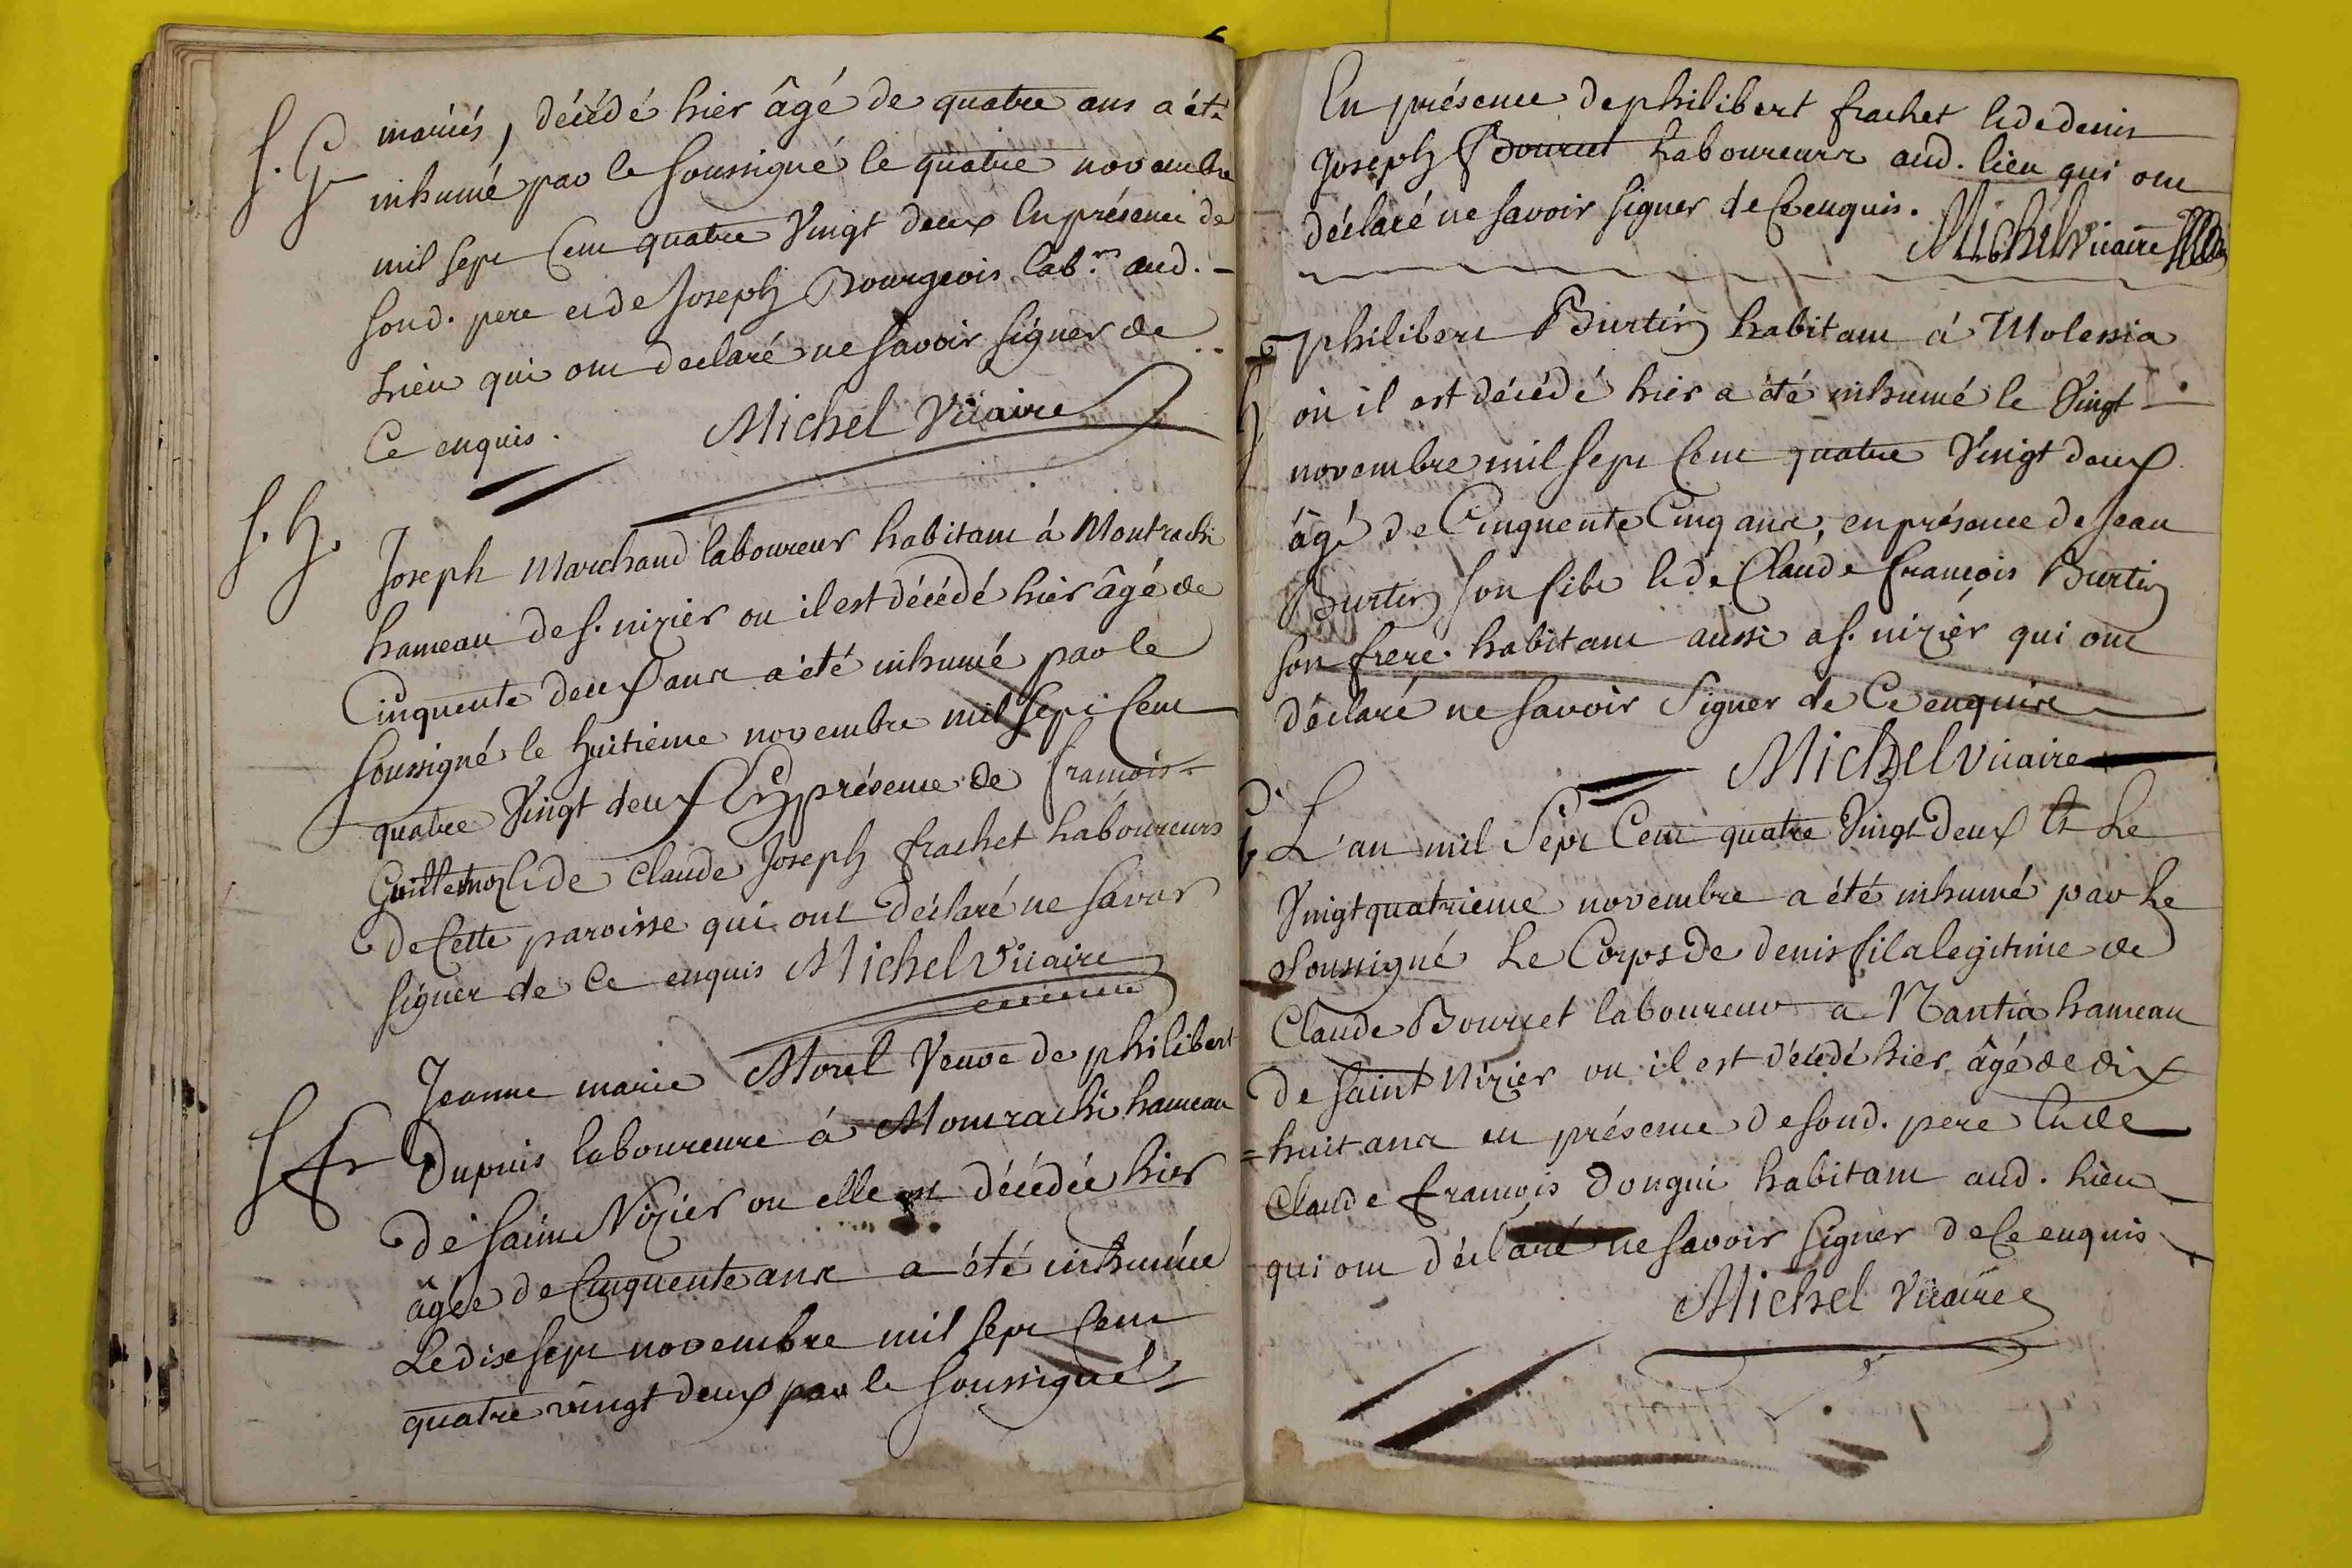 S. G
mariés, décédé hier âgé de quatre ans a été
inhumé par le soussigné le quatre novembre
mil sept Cent quatre Vingt deux En présence de
sond. pere et de Joseph Bourgeois lab.rs aud. -
Lieu qui ont declaré ne savoir signer de
Ce enquis.
Michel Vicaire
S. h.
Joseph Marchand laboureur habitant à Montrachi
hameau de S. nizier ou il est décédé hier âgé de
Cinquente deux ans a été inhumé par le
soussigné le huitième novembre mil sept Cent
quatre Vingt deux En présence de francois
Guillemoz et de Claude Joseph frachet Laboureurs
de Cette paroisse qui ont déclaré ne savoir
signer de Ce enquis Michel Vicaire
Jeanne marie Morel Veuve de philibert
S f
Dupuis laboureure à Montrachi hameau
de Saint Nizier ou elle est décédée hier
âgée de Cinquente ans a été inhumée
Le dix sept novembre mil sept Cent
quatre vingt deux par le soussigné
En présence de philibert frachet et de denis
Joseph Bourcet Laboureurs aud. lieu qui ont
déclaré ne savoir signer de Ce enquis.
Michel Vicaire
philibert Burtin habitant à Molessia
où il est décédé hier a été inhumé le Vingt
novembre mil sept Cent quatre Vingt deux
âgé de Cinquente Cinq ans, en présence de Jean
Burtin son fils et de Claude francois Burtin
son frere habitant aussi a S. nizier qui ont
déclaré ne savoir signer de Ce enquis
Michel Vicaire
L'an mil Sept Cent quatre Vingt Deux Et Le
Vingt quatrieme novembre a été inhumé par Le
Soussigné Le Corps De denis fils legitime de
Claude Bourcet laboureur a Nantia hameau
De saint Nizier ou il est décédé hier âgé de dix
=huit ans en présence de sond. pere Et de
Claude francois Donguy habitant aud. Lieu
qui ont déclaré ne savoir signer de Ce enquis
Michel Vicaire